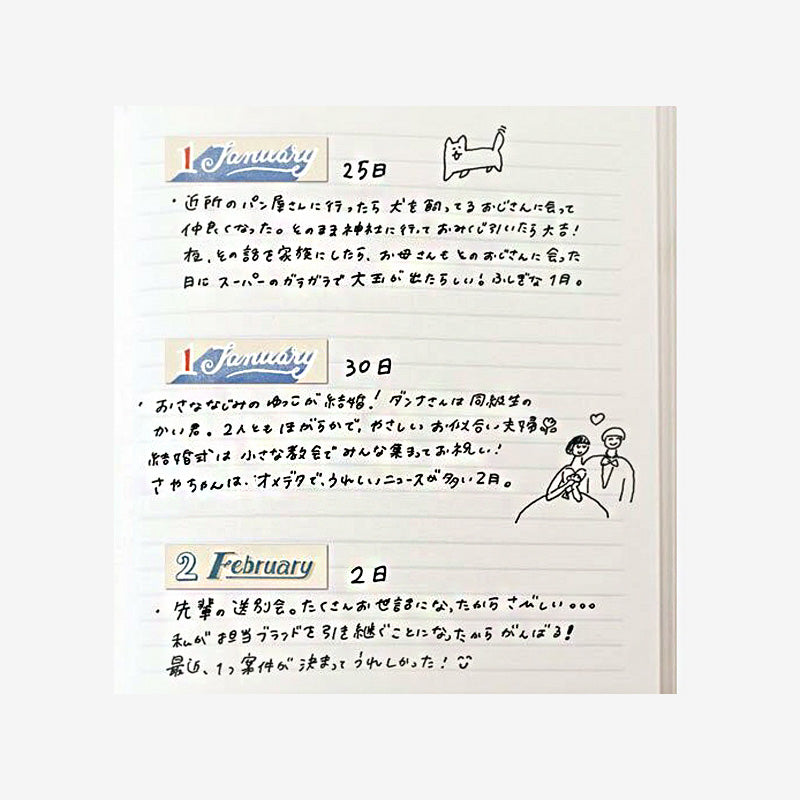 1 January 25日
・近所のパン屋さんに行ったら犬を飼ってるおじさんに会って
仲良くなった。そのまま神社に行っておみくじ引いたら大吉!
夜、その話を家族にしたら、お母さんもそのおじさんに会った
日にスーパーのガラガラで大玉が出たらしい!ふしぎな1月。
1 January 30日
・おさななじみのゆっこが結婚!ダンナさんは同級生の
かい君。2人ともほがらかで、やさしいお似合い夫婦
結婚式は小さな教会でみんな集まってお祝い!
さやちゃんは、オメデタで、うれしいニュースが多い2日。
2 February 2日
・先輩の送別会。たくさんお世話になったからさびしい...
私がお担当ブランドを引き継ぐことになったからがんばる!
最近、1つ案件が決まってうれしかった!